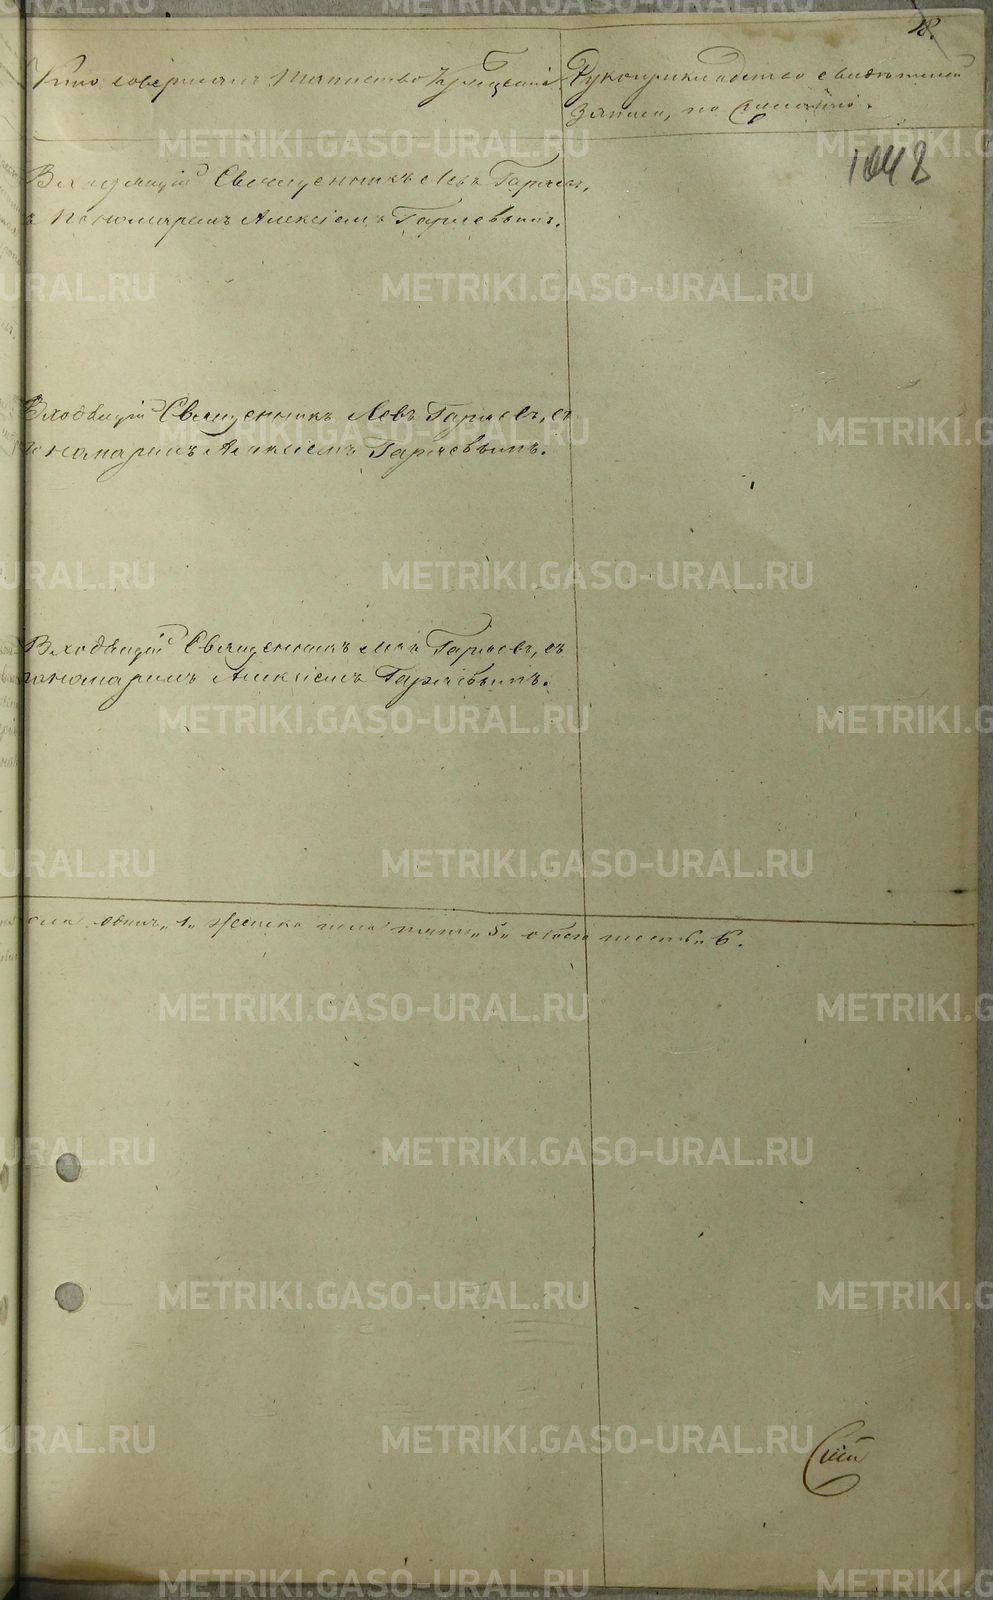 18.
Кто совершалъ таинство Крещенiя
Рукоприкладство свидѣтелей
записи, по желанiю.
1042
Входящiй Священникъ Левъ Гаряевъ,
съ Пономаремъ Алексiемъ Гаряевымъ.
Входящiй Священникъ Левъ Гаряевъ, съ
пономаремъ Алексiемъ Гаряевымъ.
Входящiй Священникъ Левъ Гаряевъ, съ
пономаремъ Алексiемъ Гаряевымъ.
пола одинъ „1„ Женска пола пять „5„ обоего шесть „6.
METRIKI.GASO-URAL.RU